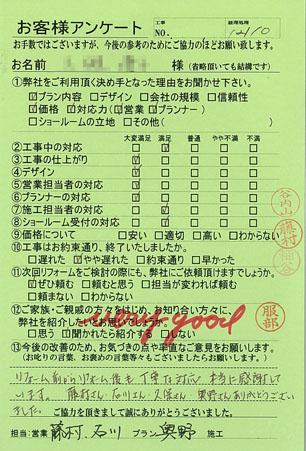 お客様アンケート 工事NO. 経理処理 12/10
お手数ではございますが、今後の参考のためにご協力のほどお願い致します。
お名前 様(省略頂いても結構です)
①弊社をご利用頂く決め手となった理由をお聞かせ下さい。
☑プラン内容 □デザイン □会社の規模 □信頼性
☑価格 ☑対応力(☑営業 ☑プランナー)
□ショールームの立地 □その他( )
大変満足 満足 普通 やや不満 不満
②工事中の対応 □ ☑ □ □ □
③工事の仕上がり □ ☑ □ □ □
④デザイン □ ☑ □ □ □
⑤営業担当者の対応 ☑ □ □ □ □
⑥プランナーの対応 ☑ □ □ □ □
⑦施工担当者の対応 □ ☑ □ □ □
⑧ショールーム受付の対応 □ ☑ □ □ □
⑨価格について □安い ☑適切 □高い □わからない
⑩工事はお約束通り、終了いたしましたか。
□遅れた ☑やや遅れた □約束通り □早かった
⑪次回リフォームをご検討の際にも、弊社にご依頼頂けますでしょうか。
☑ぜひ頼む □頼むと思う □担当が変われば頼む
□頼まない □わからない
⑫ご家族・ご親戚の方々をはじめ、お知り合い方々に、
弊社を紹介したいと思いますか。
□思う ☑聞かれたら紹介する □しない
very good
⑬今後の改善のため、お気づきの点や率直なご意見をお願いします。
(お叱りの言葉、お褒めの言葉等々もございましたらお願いします。)
リフォーム前からリフォーム後も丁寧な対応、本当に感謝して
います。藤村さん、石川さん、久保さん、奥野さんありがとうござい
ました。
ご協力を頂きまして誠にありがとうございました。
担当:営業 藤村、石川 プラン 奥野 施工
谷内山
藤村
服部